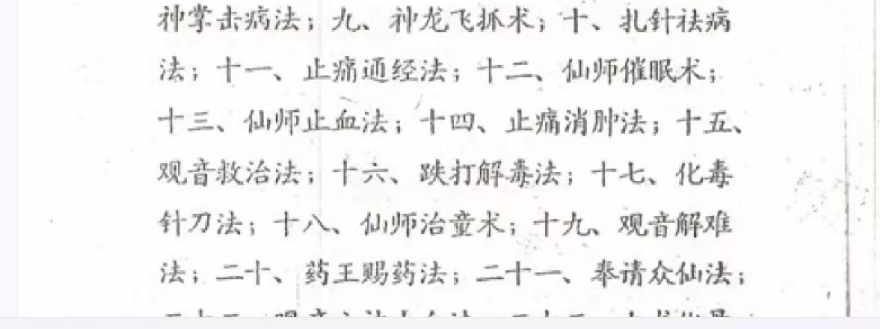 神掌击病法；九、神龙飞抓术；十、扎针祛病
法；十一、止痛通经法；十二、仙师催眠术；
十三、仙师止血法；十四、止痛消肿法；十五、
观音救治法；十六、跌打解毒法；十七、化毒
针刀法；十八、仙师治童术；十九、观音解难
法；二十、药王赐药法；二十一、奉请众仙法；